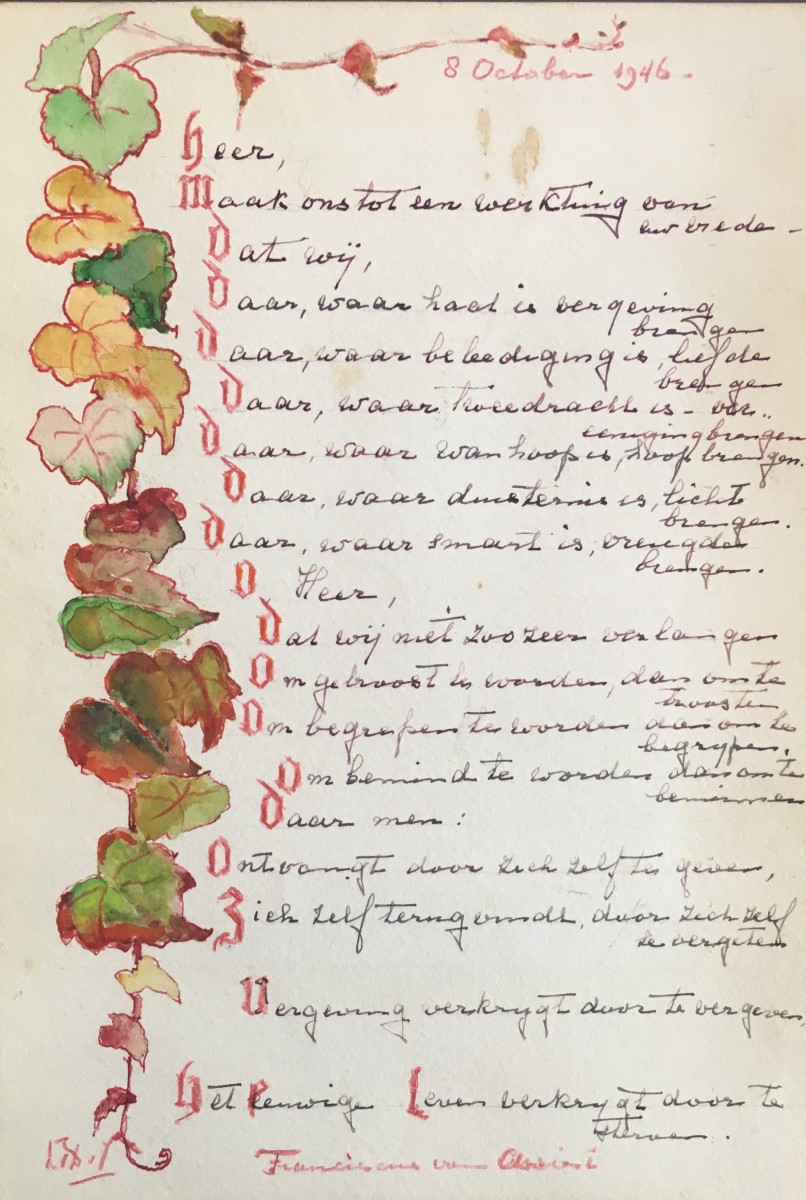 8 October 1946 -
Heer,
Maak ons tot een werktuig van
uw vrede -
Dat wij,
Daar, waar haat is vergeving
brengen
Daar, waar beleediging is, liefde
brengen
Daar, waar tweedracht is - ver..
eeniging brengen
Daar, waar wanhoop is, hoop brengen.
Daar, waar duisternis is, licht
brengen.
Daar, waar smart is, vreugde
brengen.
O Heer,
Dat wij niet zoo zeer verlangen
Om getroost te worden, dan om te
troosten
Om begrepen te worden dan om te
begrypen,
Om bemind te worden dan om te
beminnen
Daar men:
Ontvangt door zich zelf te geven,
Zich zelf terug vindt, door zich zelf
te vergeten
Vergeving verkrygt door te vergeven,
Het Eeuwige Leven verkrygt door te
sterven.
Franciscus van Assisi